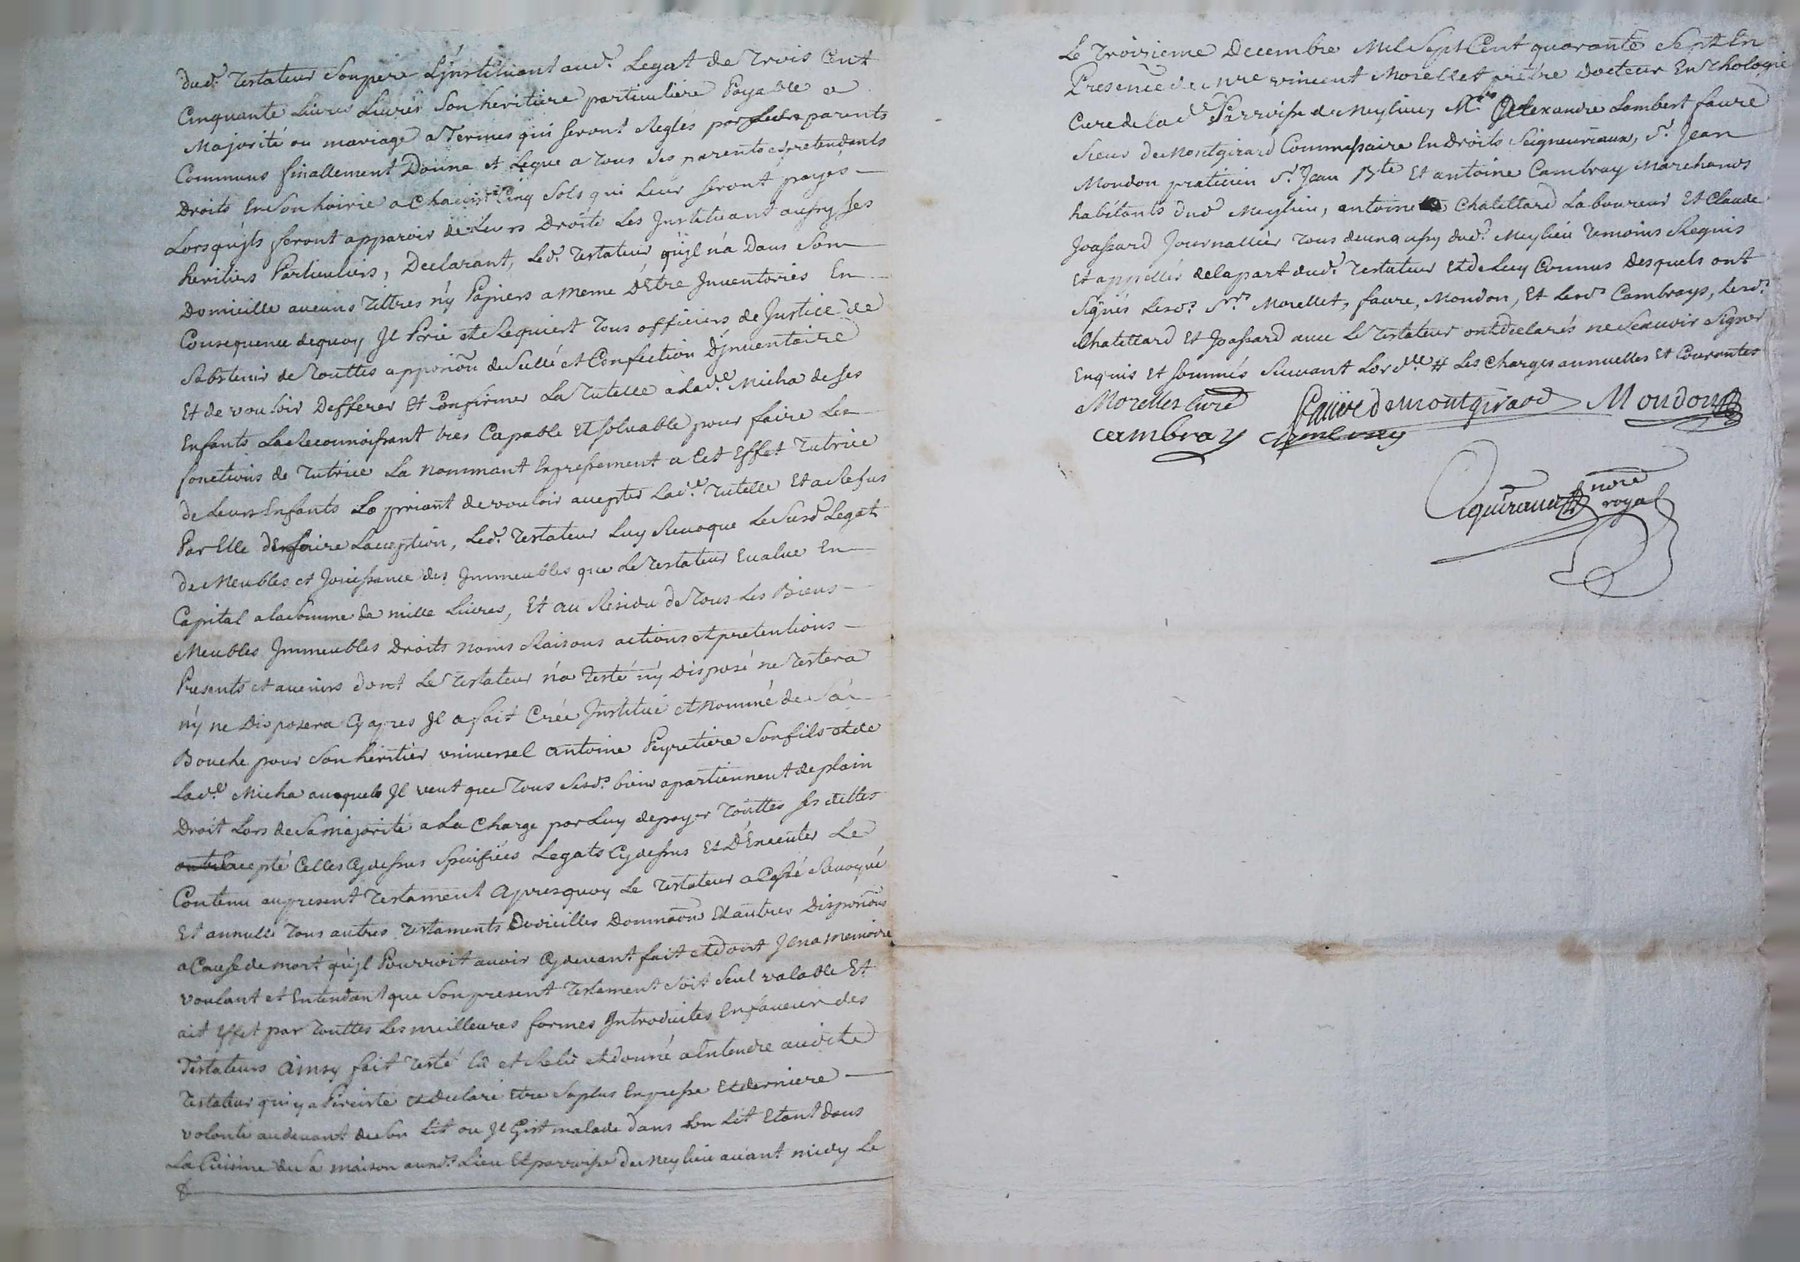 dud.t Testateur Son pere L'jnstituant aud.t Legat de Trois Cent
Cinquante Livres Livres Son heritiere particuliere Payable a
Majorité ou mariage a Termes qui seront Regles par leurs parents
Communs finallement Donne et Legue a Tous Ses parents et pretendants
Droits En Son hoirie a Chacun Cinq Sols qui Leur Seront payés —
Lorsqu'jls feront apparoir de Leurs Droits Les Jnstituant aussy Ses
heritiers Particuliers, Declarant, Led.t Testateur qu'jl n'a Dans Son
Domicille aucuns Tittres n'y Papiers a meme D'Etre Jnventoriés En
Consequence dequoy Jl Prie et Requiert Tous officiers de Justice de
Sabstenir de Touttes apposiõn de Scellé et Confection D'jnventaire
Et de vouloir Defferer Et Confirmer La Tutelle a Lad.e Micha de Ses
Enfants La Reconnoissant tres Capable Et Soluable pour faire Les
fonctions de Tutrice La nommant Expressement a Cet Effet Tutrice
de Leurs Enfants La priant de vouloir accepter Lad.e Tutelle Et a Refus
Par Elle d'En faire Laception, Led.t Testateur Luy Revoque Le Susd. Legat
de Meubles et Joüissance des Jmmeubles que Le Testateur Evalue En —
Capital a la Somme de mille Livres, Et au Residu de Tous Les Biens —
Meubles Jmmeubles Droits noms Raisons actions et pretentions —
Presents et avenirs dont Le Testateur n'a Testé n'y Disposé ne Testera
n'y ne Disposera Cy apres Jl a fait Créé Jnstitué et nommé de Sa —
Bouche pour Son heritier vniversel antoine Peyretiere Son fils et de
Lad.e Micha auquel Jl veut que Tous Sesd.s biens apartiennent de plain
Droit Lors de Sa majorité a La Charge par Luy de payer Touttes Ses dettes
Excepté Celles Cydessus Specifiées Legats Cydessus Et D'Executer Le
Contenu au present Testament apresquoy Le Testateur a Cassé Revoqué
Et annullé Tous autres Testaments Codicilles Donnaõns Et autres Disposiõns
a Cause de mort qu'jl Pourroit avoir Cydevant fait et dont Jl n'a memoire
voulant et Entendant que Son present Testament Soit Seul valable Et
ait Effet par Touttes Les meilleures formes Jntroduittes En faveur des
Testateurs Ainsy fait Testé Lû et Relû et donné a Entendre audit
Testateur qui y a Persisté et Declaré Etre Sa plus Expresse Et derniere —
volonté audevant de Son Lit ou Jl Gist malade dans Son Lit Etant dans
La Cuisine de Sa maison aud.t Lieu Et parroisse de Meylieu avant midy Le
Le Troisieme Decembre Mil Sept Cent quarante Sept En
Presence de m.re vincent Morellet prêtre Docteur En Thologie
Curé de lad.e Parroisse de Meylieu, M.e Alexandre Lambert faure
Sieur de Montgirard Commissaire En Droits Seigneuriaux, S.r Jean
Mondon praticien S.r Jean B.te Et antoine Cambray Marchands
habitants dud. Meylieu, antoine Chalettard Laboureur Et Claude
Joassard Journallier Tous deumeurant aud.t Meylieu Temoins Requis
Et appellés de la part dud.t Testateur Et de Luy Connus Desquels ont
Signés Lesd.s S.rs Morellet, faure, Mondon, Et Lesd.s Cambrays, Lesd.s
Chalettard Et Joassard avec Le Testateur ont declarés ne Scavoir Signer
Enquis Et Sommés Suivant Lord.ce # Les Charges annuelles Et Courantes
Morellet curé Faure de montgirard Mondon
cambray cambray
no.re
royal